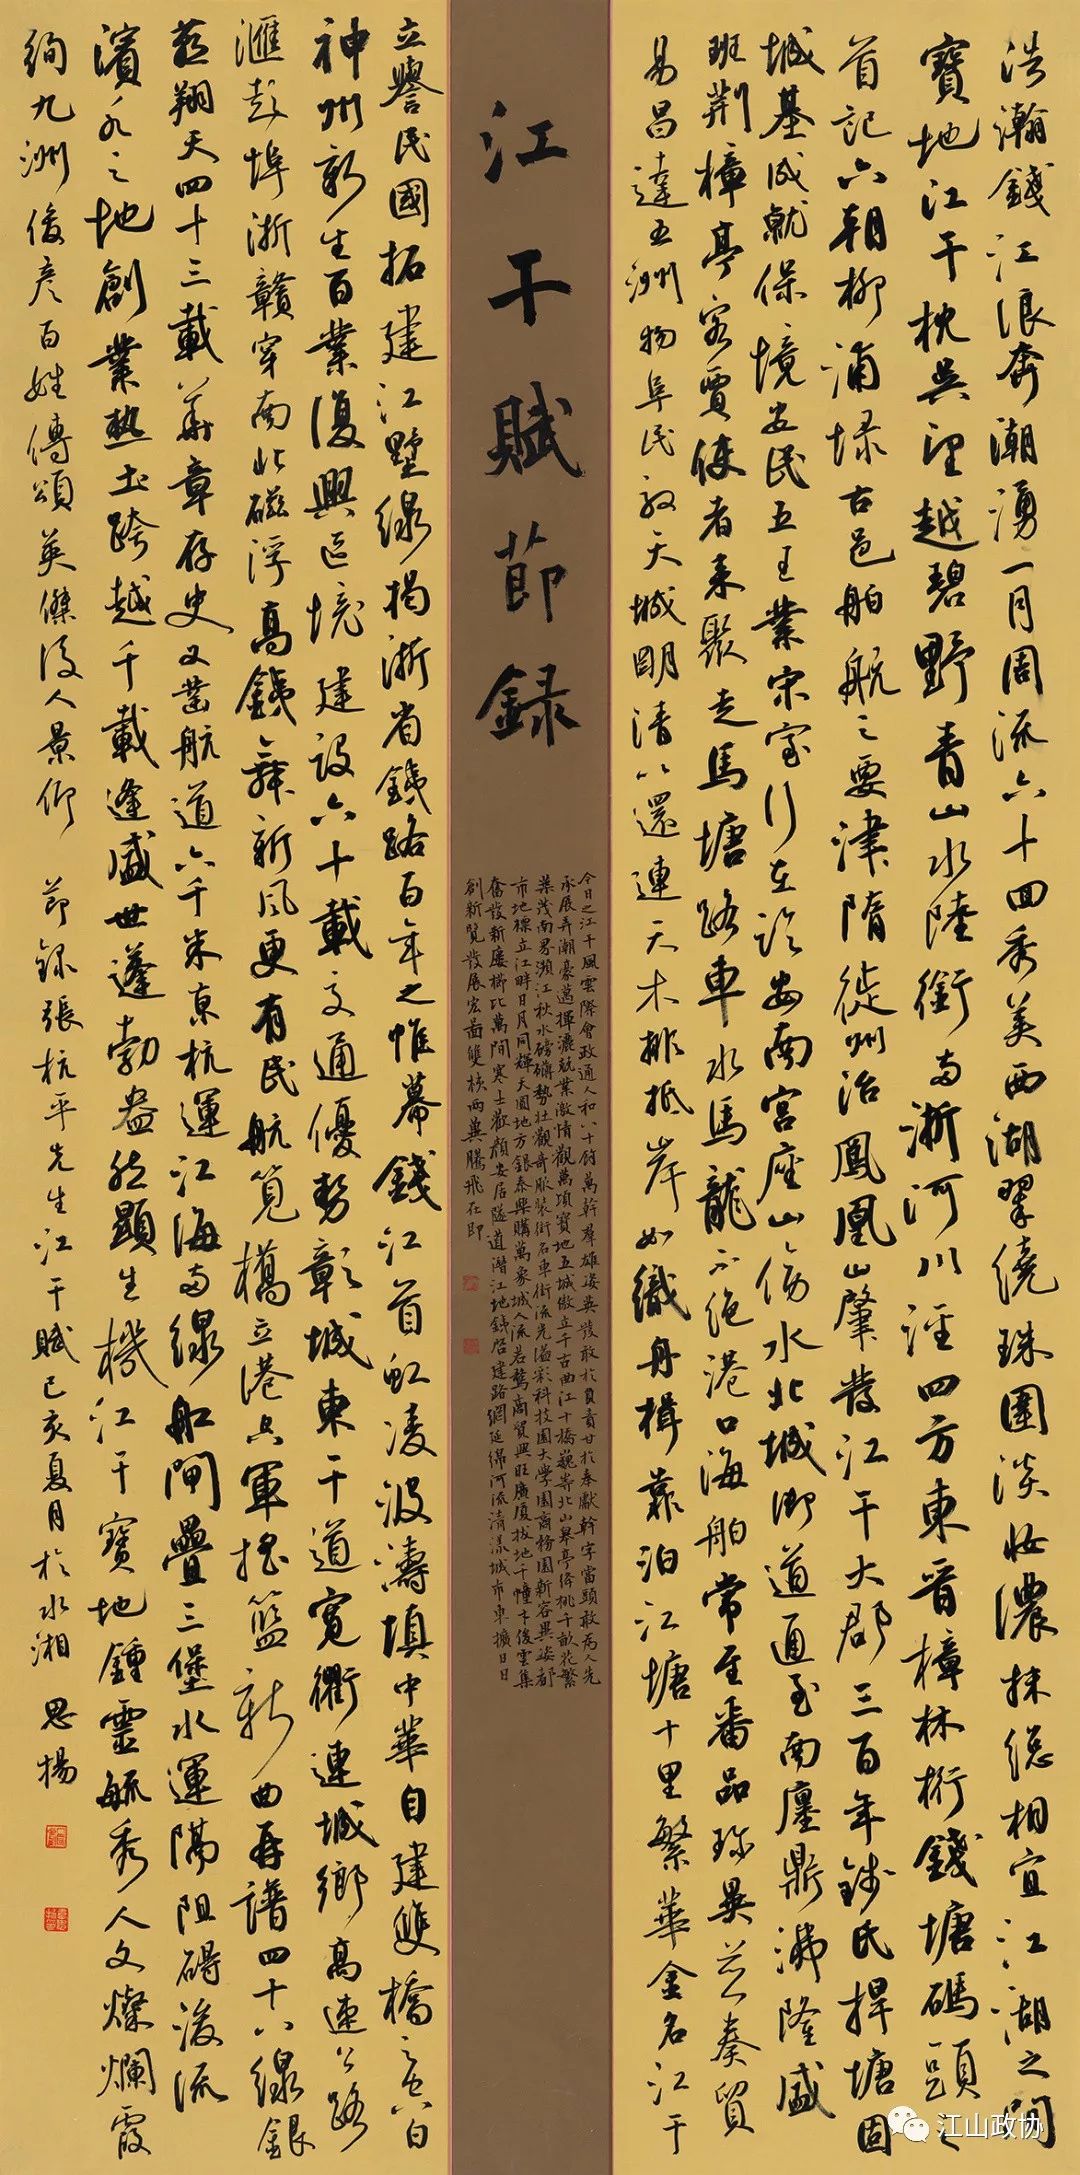 浩瀚錢江浪奔潮湧一月周流六十回秀美西湖翠繞珠圍淡妝濃抹總相宜江湖之間
寶地江干枕吳望越碧野青山水陸銜寺浙河川逕四方東晉樟林桁錢塘碼頭之
首記六朝柳浦埭古邑舶航之要津隋徙州治鳳凰山肇發江干大郡三百年錢氏捍塘固
城基成就保境安民五王業宋室行在臨安南宮座山傍水北城御道通至南廛鼎沸隆盛
班荊樟亭客賈使者來聚走馬塘路車水馬龍不絕港口海舶常至番品珍異茲奏貿
易昌達五洲物阜民敦天城明清以還連天木排抵岸如織舟楫靠泊江塘十里繁華金名江干
江干賦節錄
今日之江干風雲際會政通人和八十餘萬幹群雄姿英發敢於負責甘於奉獻幹字當頭敢為人先
承展弄潮豪邁揮灑就業激情觀萬頃寶地五城傲立千古曲江十橋巍峩北山皋亭絳桃千畝花繁
葉茂南界瀕江秋水磅礴勢壯觀奇服裝街名車街流光溢彩科技園大學園商務園新容異姿都
市地標立江畔日月同輝天圓地方銀泰樂購萬象城人流若鶩商貿興旺廣廈拔地千幢下俊雲集
奮發新廈櫛比萬間寒士歡顏安居隧道潛江地鐵啓建路網延綿河流清漾城市東擴日日
創新覽發展宏圖雙核兩翼騰飛在即
立譽民國拓建江墅線揭浙省鐵路百年之帷幕錢江首虹凌波濤填中華自建雙橋之空白
神州新生百業復興區境建設六十載交通優勢彰城東干道寬衢連城鄉高速公路
滙彭埠浙贛穿南北磁浮高鐵舞新風更有民航筧橋立港空軍搖籃新曲再譜四十八線銀
燕翔天四十三載華章存史又鑿航道六千米京杭運江海寺線船閘疊三堡水運隔阻碍浚流
濱水之地創業熱土跨越千載逢盛世蓬勃盎然顯生機江干寶地鍾靈毓秀人文燦爛霞
絢九洲俊彥百姓傳頌英傑後人景仰 節錄張杭平先生江干賦己亥夏月於水湘 思楊
江山政协